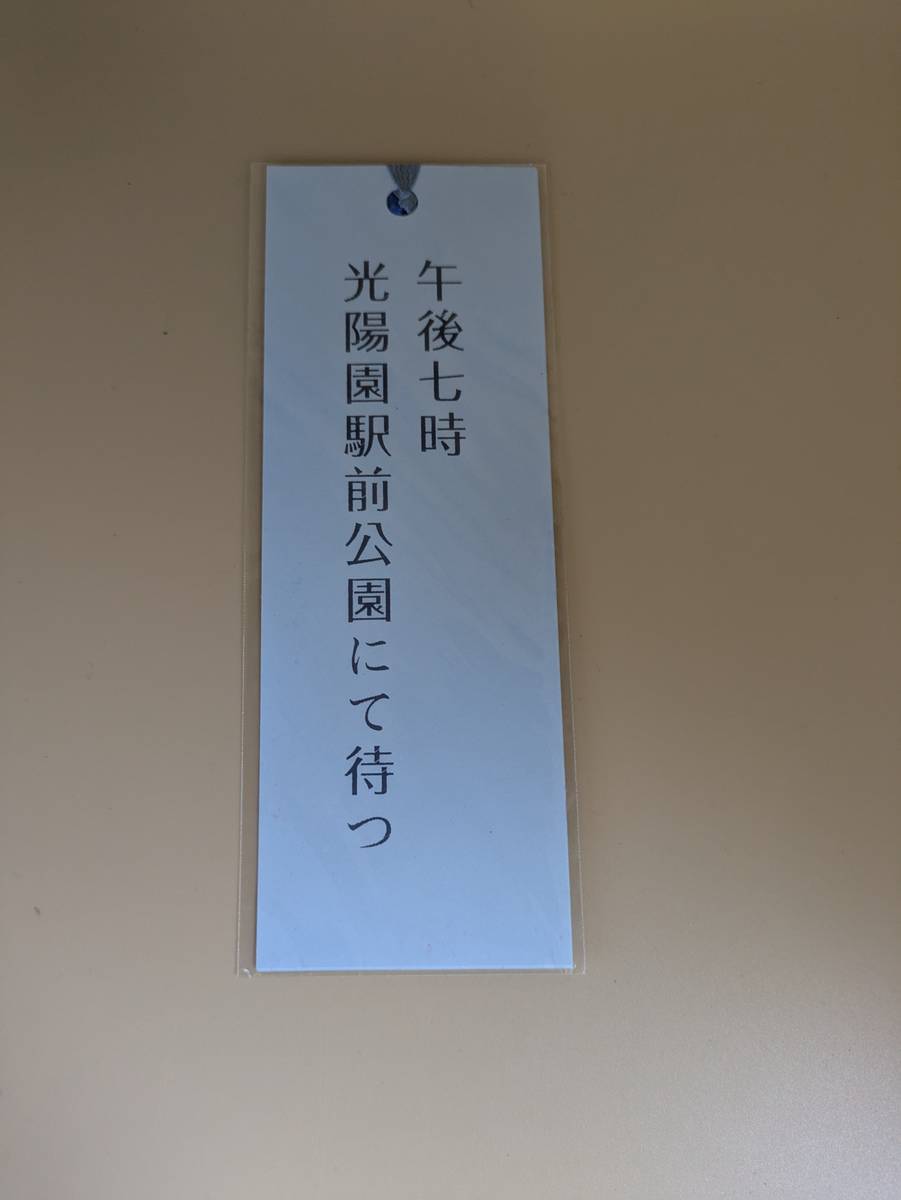 午後七時
光陽園駅前公園にて待つ